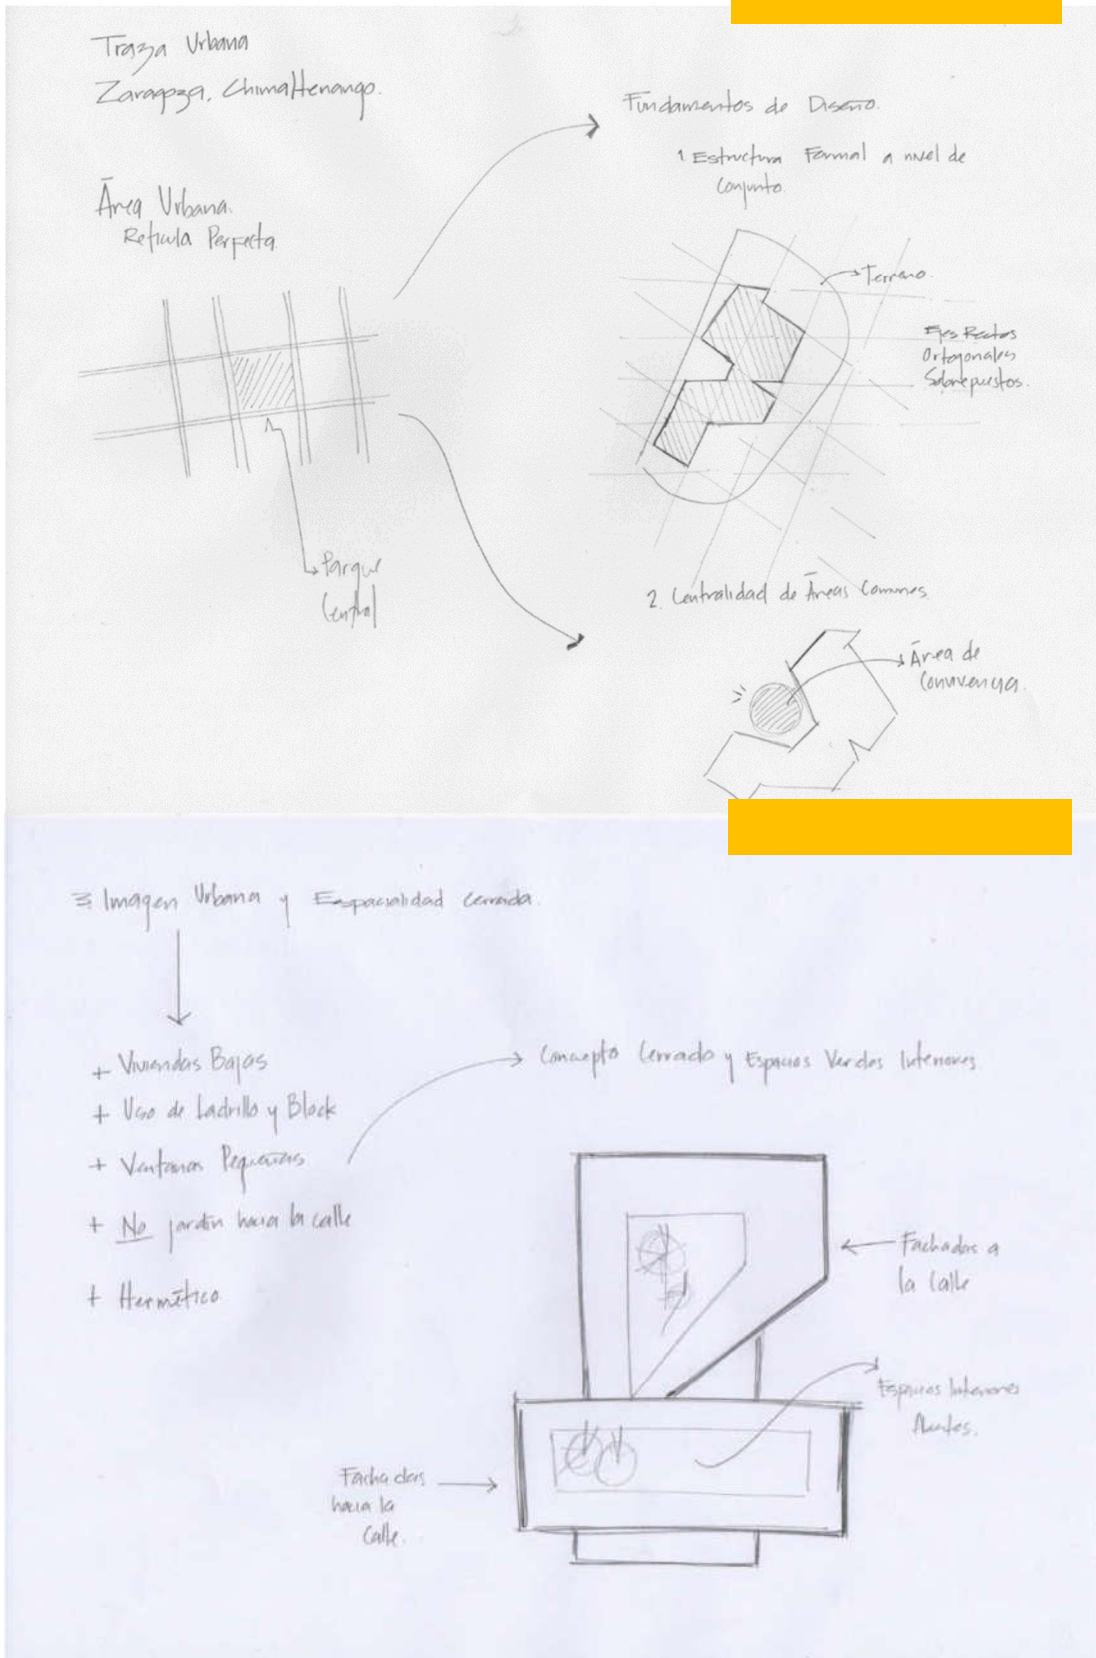 Traza Urbana
Zaragoza, Chimaltenango.
Área Urbana.
Retícula Perfecta.
Parque
Central
Fundamentos de Diseño.
1. Estructura Formal a nivel de
Conjunto.
Terreno.
Ejes Rectos
Ortogonales
Sobrepuestos.
2. Centralidad de Áreas Comunes.
Área de
Convivencia.
3. Imagen Urbana y Espacialidad Cerrada.
+ Viviendas Bajas
+ Uso de Ladrillo y Block
+ Ventanas Pequeñas
+ No jardín hacia la calle
+ Hermético
Concepto Cerrado y Espacios Verdes Interiores
Fachadas a
la Calle
Espacios Interiores
Abiertos.
Fachadas
hacia la
Calle.